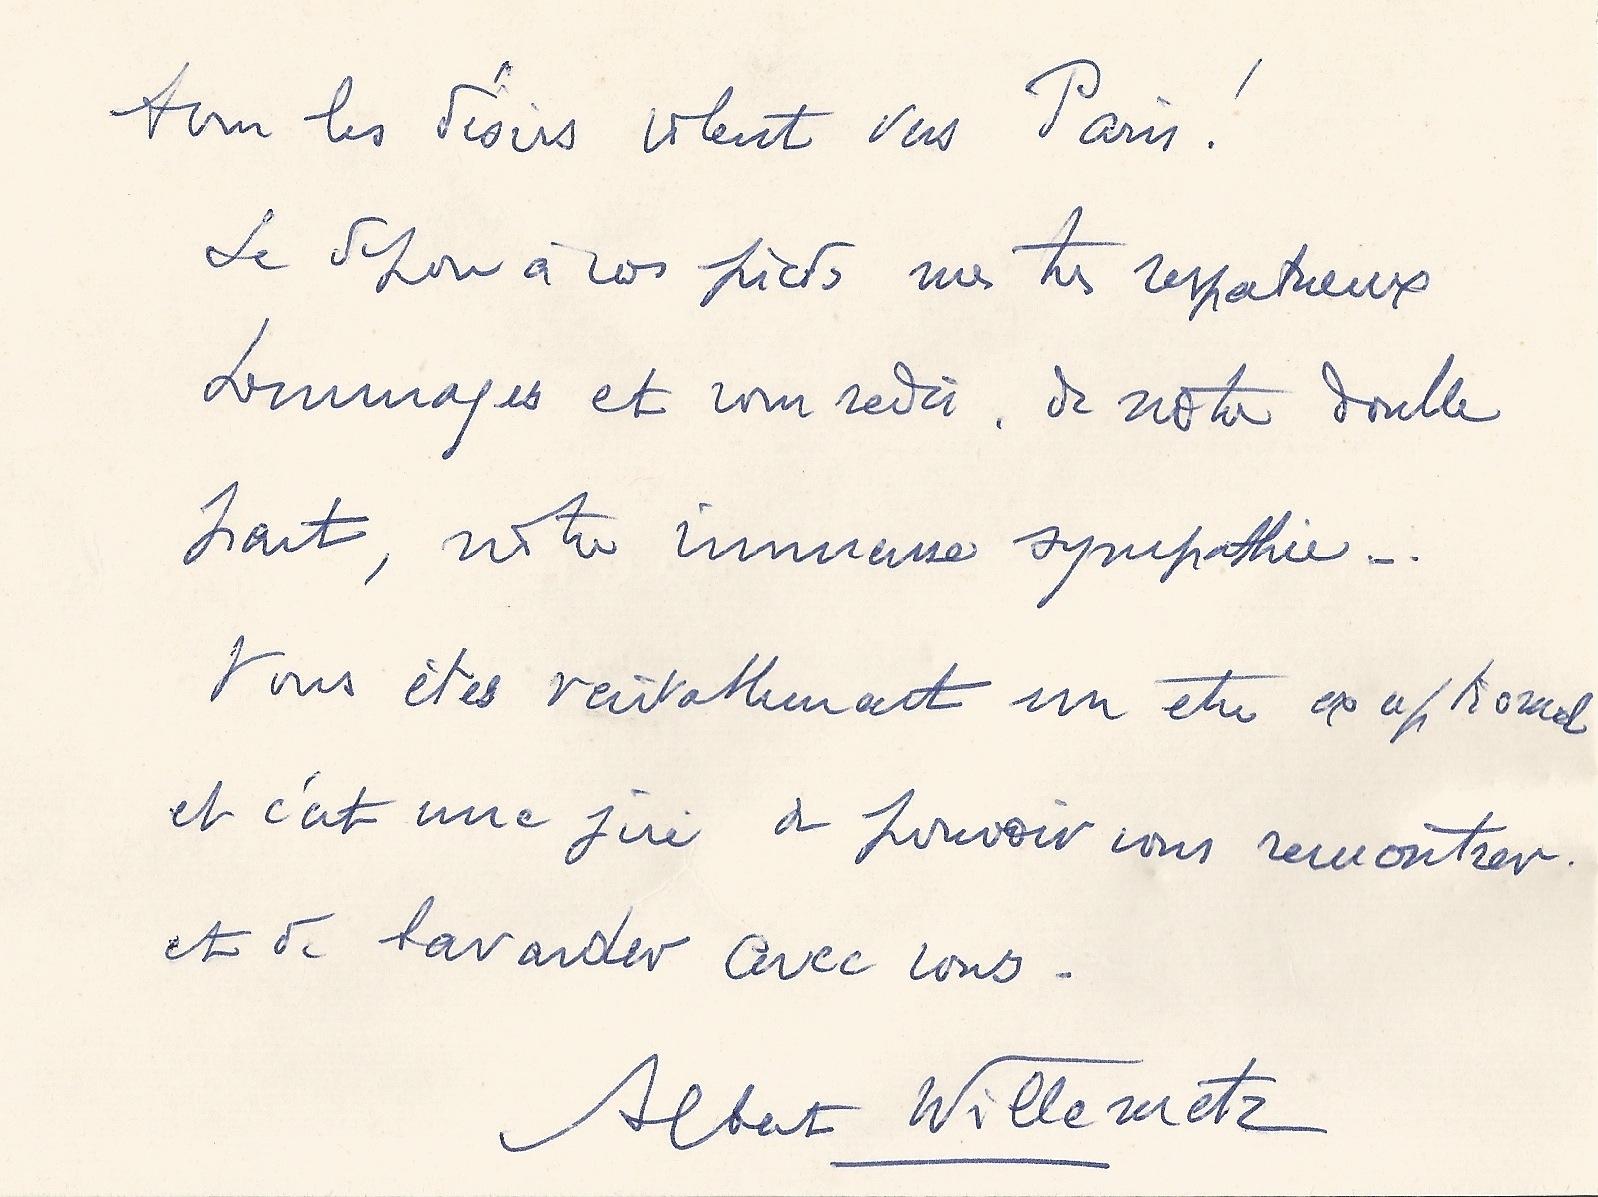 tous les désirs volent vers Paris !
Je dépose à vos pieds mes très respectueux
hommages et vous redis, de notre double
part, notre immense sympathie ...
Vous êtes véritablement un être exceptionnel
et c'est une joie de pouvoir vous rencontrer.
et de bavarder avec vous.
Albert Willemetz